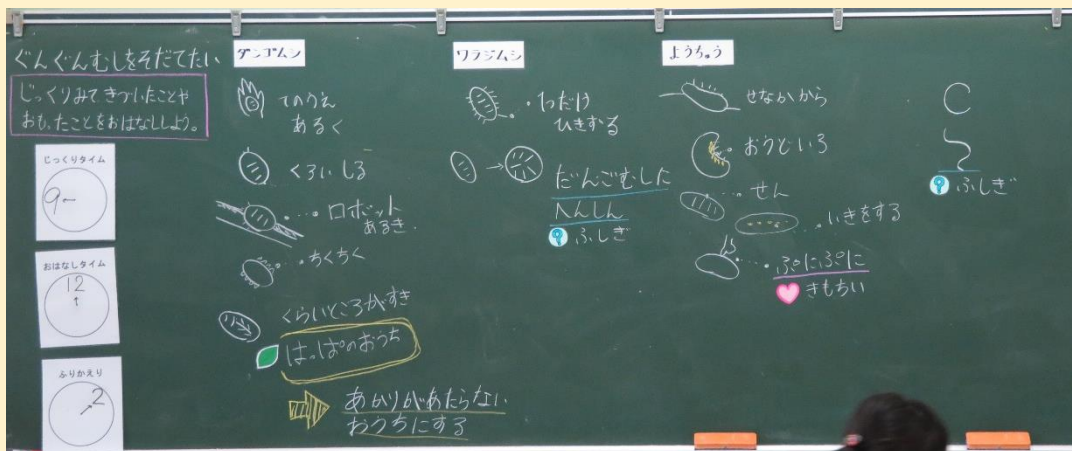 ぐんぐんむしをそだてたい
じっくりみてきづいたことや
おもったことをおはなししよう。
じっくりタイム
9
おはなしタイム
12
ふりかえり
2
ダンゴムシ
てのうえ
あるく
くろいしる
ロボット
あるき
ちくちく
くらいところがすき
はっぱのおうち
あかりがあたらない
おうちにする
ワラジムシ
1つだけ
ひきずる
だんごむしした
へんしん
ふしぎ
ようちゅう
せなかから
おうどいろ
せん
いきをする
ぷにぷに
きもちい
ふしぎ